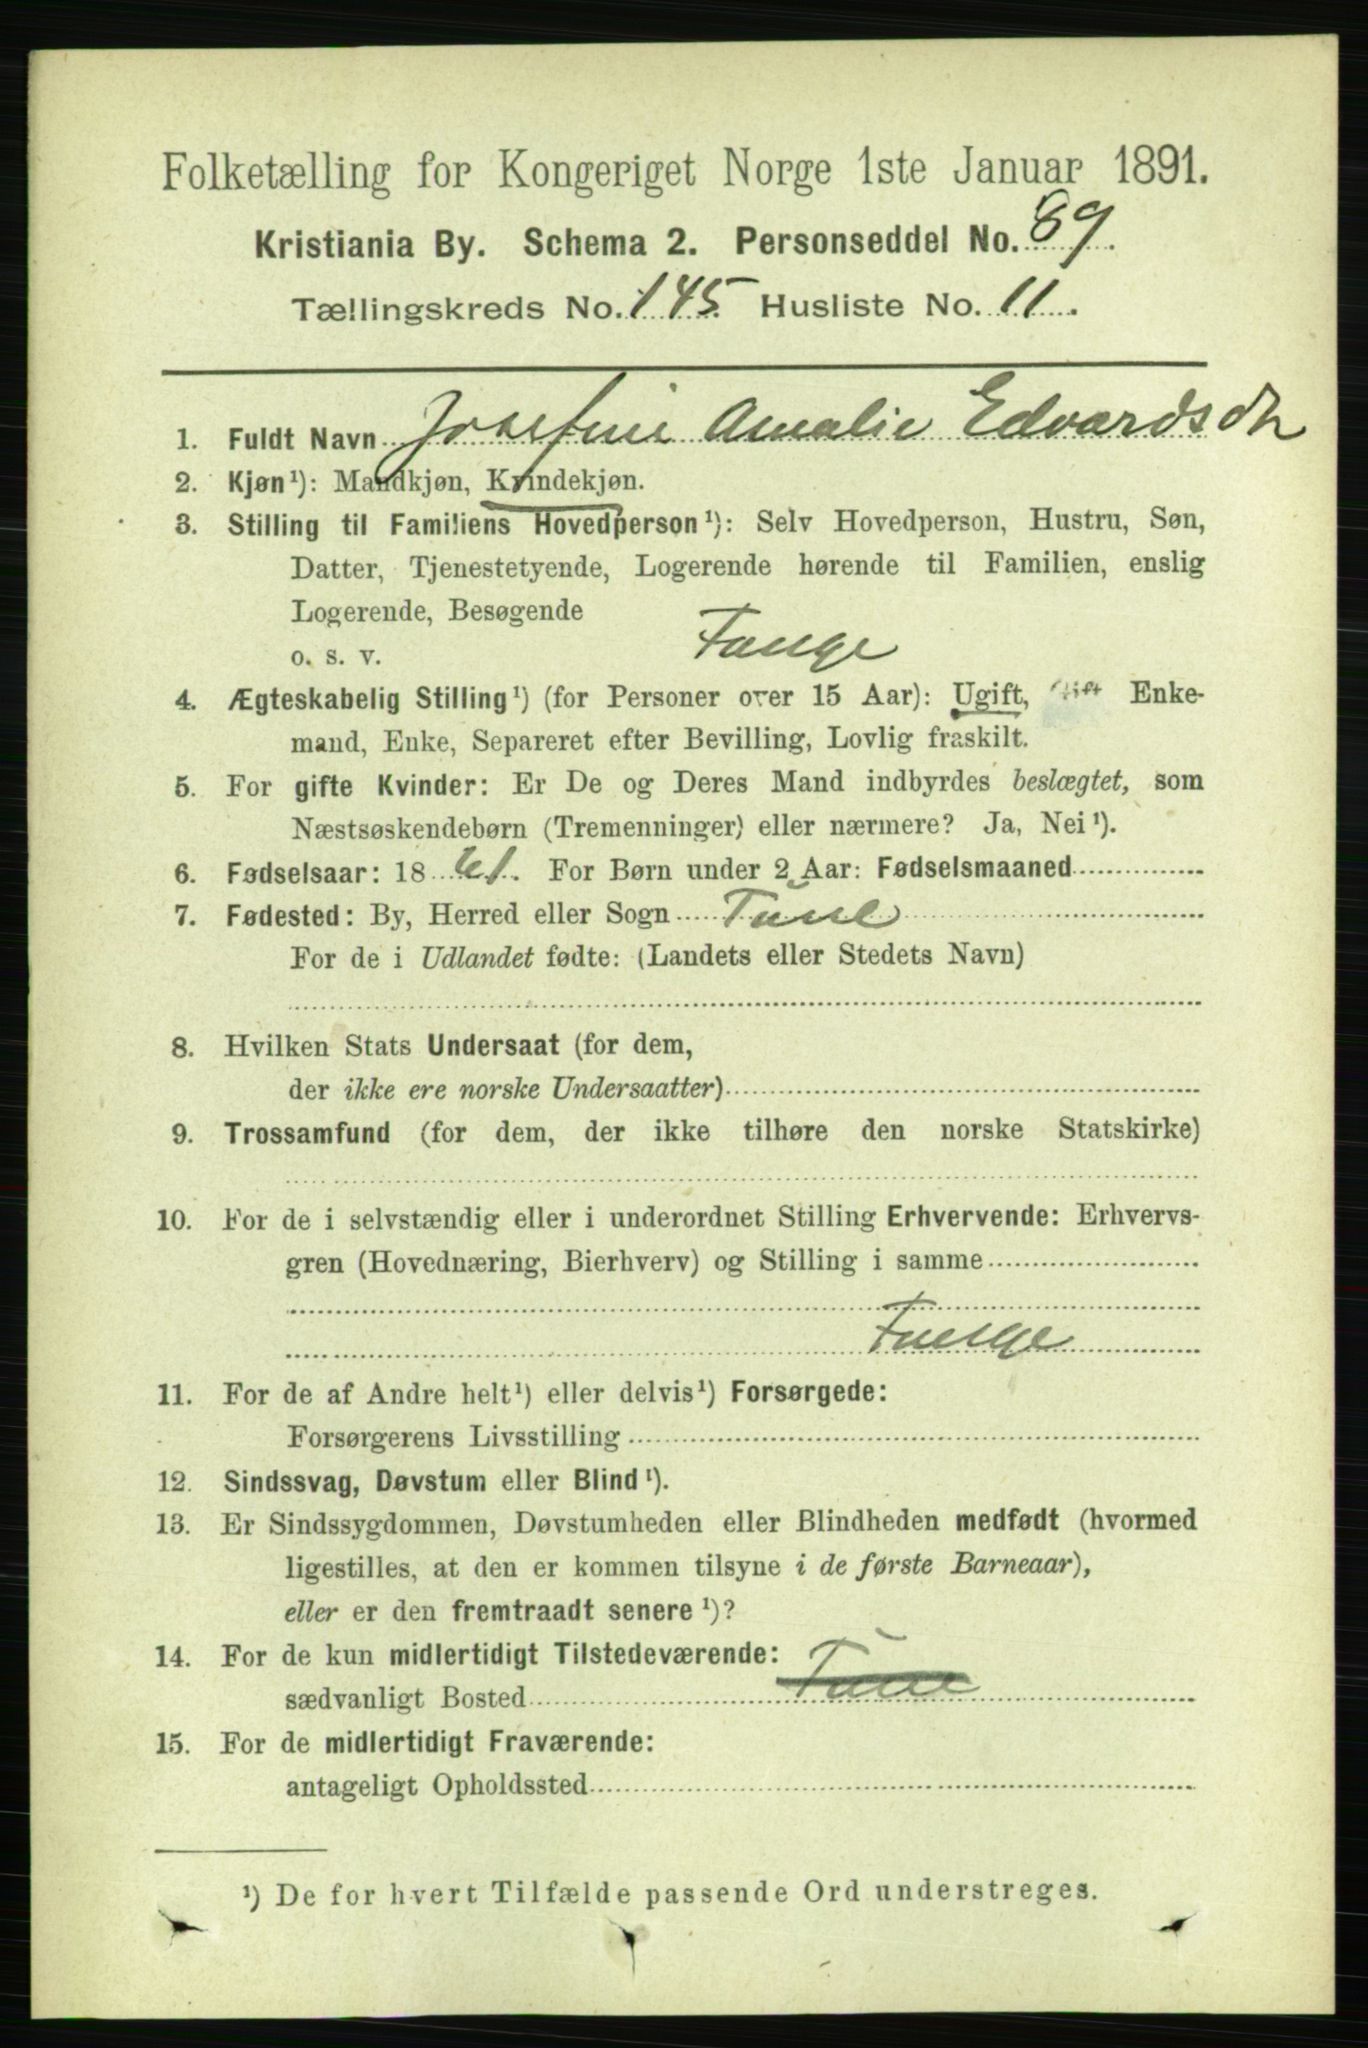 Folketælling for Kongeriget Norge 1ste Januar 1891.
Kristiania By. Schema 2. Personseddel No. 89.
Tællingskreds No. 145. Husliste No. 11.
1. Fuldt Navn Josefine Amalie Edvardsdtr
2. Kjøn¹): Mandkjøn, Kvindekjøn.
3. Stilling til Familiens Hovedperson¹): Selv Hovedperson, Hustru, Søn,
Datter, Tjenestetyende, Logerende hørende til Familien, enslig
Logerende, Besøgende
o. s. v. Fange
4. Ægteskabelig Stilling¹) (for Personer over 15 Aar): Ugift, Gift Enke-
mand, Enke, Separeret efter Bevilling, Lovlig fraskilt.
5. For gifte Kvinder: Er De og Deres Mand indbyrdes beslægtet, som
Næstsøskendebørn (Tremenninger) eller nærmere? Ja, Nei¹).
6. Fødselsaar: 1861. For Børn under 2 Aar: Fødselsmaaned
7. Fødested: By, Herred eller Sogn Tune
For de i Udlandet fødte: (Landets eller Stedets Navn)
8. Hvilken Stats Undersaat (for dem,
der ikke ere norske Undersaatter)
9. Trossamfund (for dem, der ikke tilhøre den norske Statskirke)
10. For de i selvstændig eller i underordnet Stilling Erhvervende: Erhvervs-
gren (Hovednæring, Bierhverv) og Stilling i samme
Fange
11. For de af Andre helt¹) eller delvis¹) Forsørgede:
Forsørgerens Livsstilling
12. Sindssvag, Døvstum eller Blind¹).
13. Er Sindssygdommen, Døvstumheden eller Blindheden medfødt (hvormed
ligestilles, at den er kommen tilsyne i de første Barneaar),
eller er den fremtraadt senere¹)?
14. For de kun midlertidigt Tilstedeværende:
sædvanligt Bosted Tune
15. For de midlertidigt Fraværende:
antageligt Opholdssted
¹) De for hvert Tilfælde passende Ord understreges.